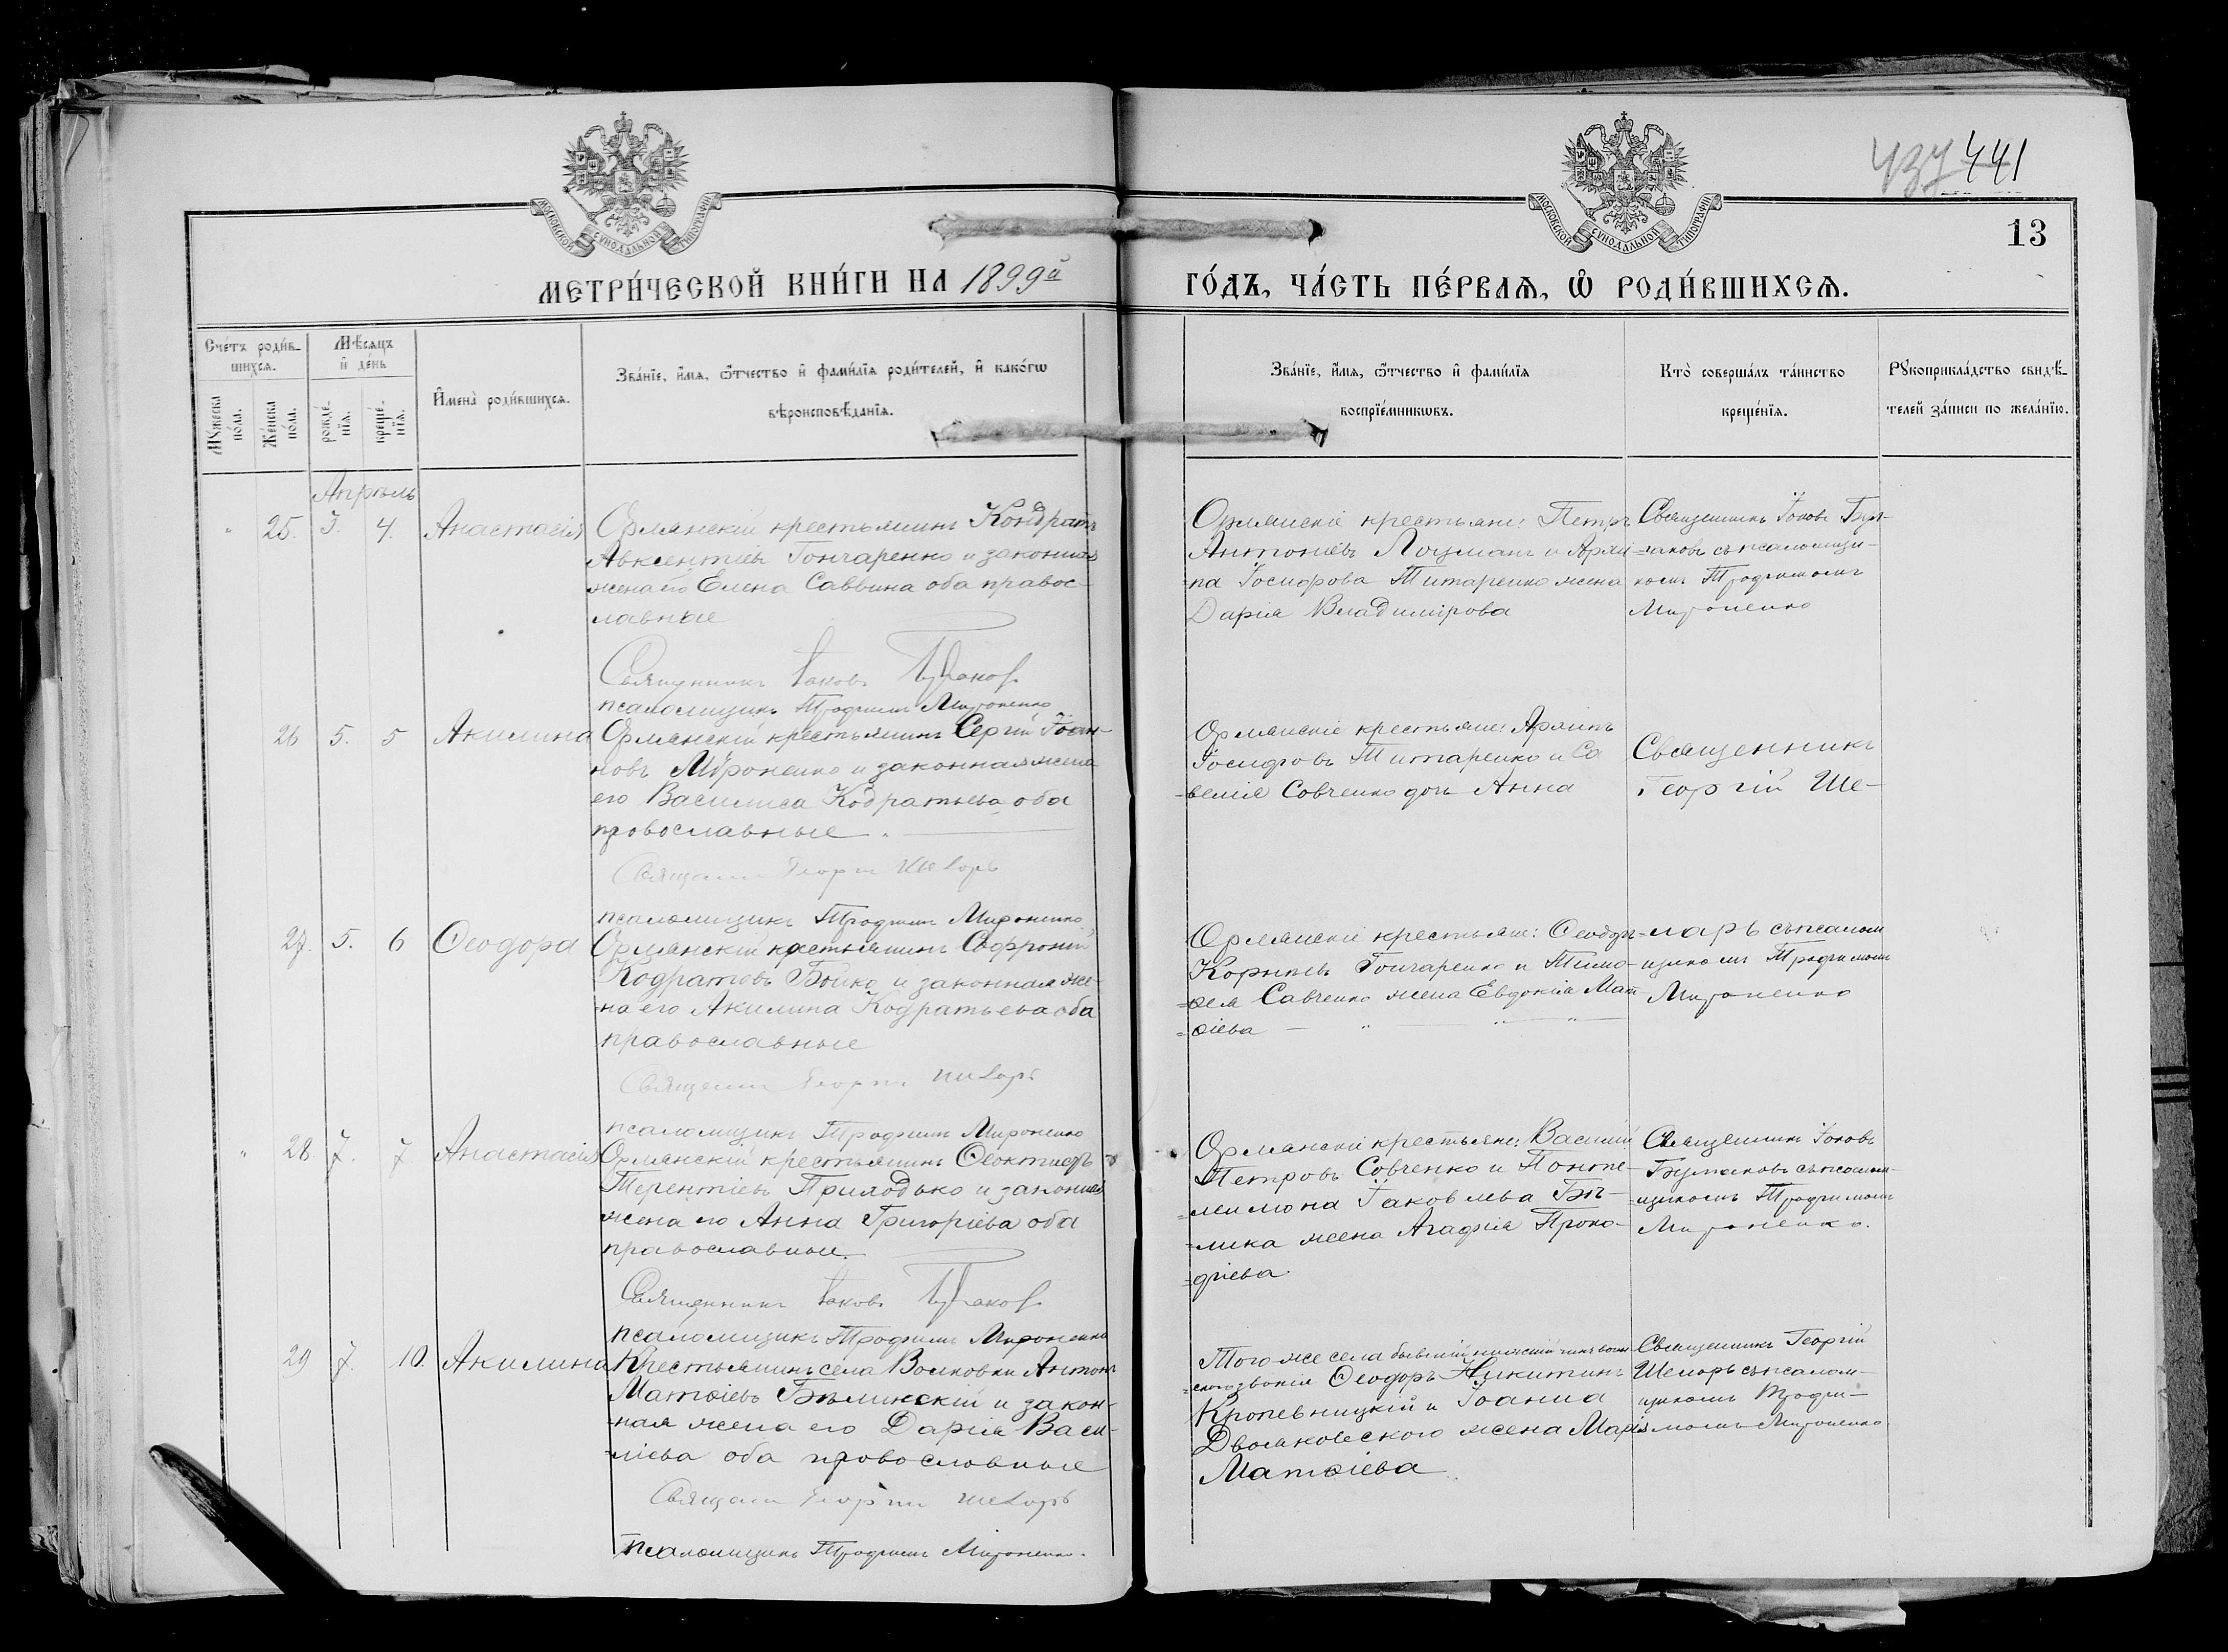 437 441
МОСКОВСКОЙ СѴНОДАЛЬНОЙ ТИПОГРАФІИ
МОСКОВСКОЙ СѴНОДАЛЬНОЙ ТИПОГРАФІИ
13
МЕТРИ́ЧЕСКОЙ КНИ́ГИ НА 1899й
ГО́ДЪ, ЧА́СТЬ ПЕ́РВАѦ, Ѡ҆ РОДИ́ВШИХСѦ.
Сче́тъ роди́в-
шихсѧ.
Мꙋ́жеска по́ла.
Же́нска по́ла.
Мѣ́сяцъ
и҆ де́нь
рожде́-нїѧ.
креще́-нїѧ.
И҆мена̀ роди́вшихсѧ.
Зва́нїе, и҆́мѧ, ѻ҆́тчество и҆ фами́лїѧ роди́телей, и҆ како́гѡ
вѣроисповѣ́данїѧ.
Зва́нїе, и҆́мѧ, ѻ҆́тчество и҆ фами́лїѧ
воспрїе́мникѡвъ.
Кто̀ соверша́лъ та́инство
креще́нїѧ.
Рꙋкоприкла́дство свидѣ́-
телей за́писи по жела́нїю.
Апрѣль
25. 3. 4. Анастасія
Орлянскій крестьянинъ Кондратъ
Авксентіевъ Гончаренко и законная
жена его Елена Саввина оба правос-
лавные
Священникъ Іаковъ
псаломщикъ Трофимъ Мироненко
Орлянскіе крестьяне: Петръ
Антоніевъ Лоцманъ и Архи-
па Іосифова Титаренко жена
Дарія Владимірова
Священникъ Іаковъ
съ псаломщи-
комъ Трофимомъ
Мироненко
26 5. 5 Акилина
Орлянскій крестьянинъ Сергій Іоан-
новъ Мироненко и законная жена
его Василиса Кодратьева оба
провославные.
Священн Георгі Шеларь
псаломщикъ Трофимъ Мироненко
Орлянскіе крестьяне: Архипъ
Іосифовъ Титаренко и Са
велія Совченко дочь Анна
Священникъ
Георгій Ше-
27. 5. 6 Ѳеодора
Орлянскій крестьянинъ Софроній
Кодратовъ Бойко и законная же-
на его Акилина Кодратьева оба
православные
Священн Георгі Шеларь
псаломщикъ Трофимъ Мироненко
Орлянскіе крестьяне: Ѳеодоръ
Корніевъ Гончаренко и Тимо-
ѳея Савченко жена Евдокія Мат
=ѳіева
=ларь съ псалом
щикомъ Трофимомъ
Мироненко
28. 7. 7 Анастасія
Орлянскій крестьянинъ Ѳеоктистъ
Терентіевъ Приходько и законная
жена его Анна Григоріева оба
православные.
Священникъ Іаковъ
псаломщикъ Трофимъ Мироненко
Орлянскіе крестьяне: Василій
Петровъ Совченко и Понте-
леимона Іаковлева Бѣ-
=лика жена Агафія Проко-
=фіева
Священникъ Іаковъ
съ псалом-
щикомъ Трофимомъ
Мироненко.
29 7. 10. Акилина
Крестьянинъ села Волковки Антонъ
Матѳіевъ Бѣлинскій и закон-
ная жена его Дарія Васи-
ліева оба провославные
Священн Георгі Шеларь
псаломщикъ Трофимъ Мироненко.
Того-же села бывшій нижній чинъ воин
=скаго званія Ѳеодоръ Никитинъ
Кропевницкій и Іоанна
Двояковского жена Марія
Матѳіева
Священникъ Георгій
Шеларь съ псалом-
щикомъ Трофи-
момъ Мироненко